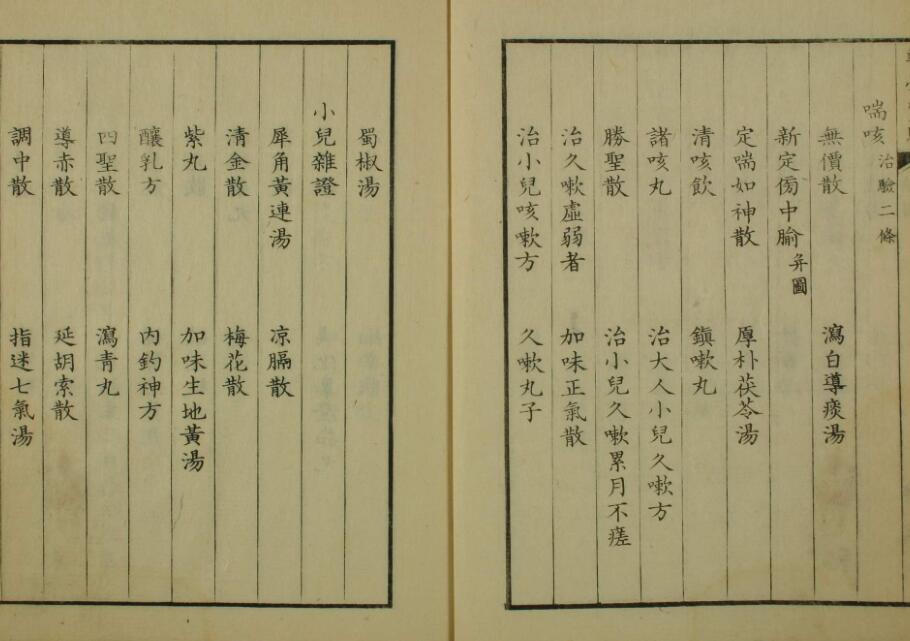 喘咳 治驗二條
無價散 瀉白導痰湯
新定傍中腧 并圖
定喘如神散 厚朴茯苓湯
清咳飲 鎮嗽丸
諸咳丸 治大人小兒久嗽方
勝聖散 治小兒久嗽累月不瘥
治久嗽虛弱者 加味正氣散
治小兒咳嗽方 久嗽丸子
蜀椒湯
小兒雜證
犀角黃連湯 凉膈散
清金散 梅花散
紫丸 加味生地黃湯
釀乳方 內釣神方
四聖散 瀉青丸
導赤散 延胡索散
調中散 指迷七氣湯